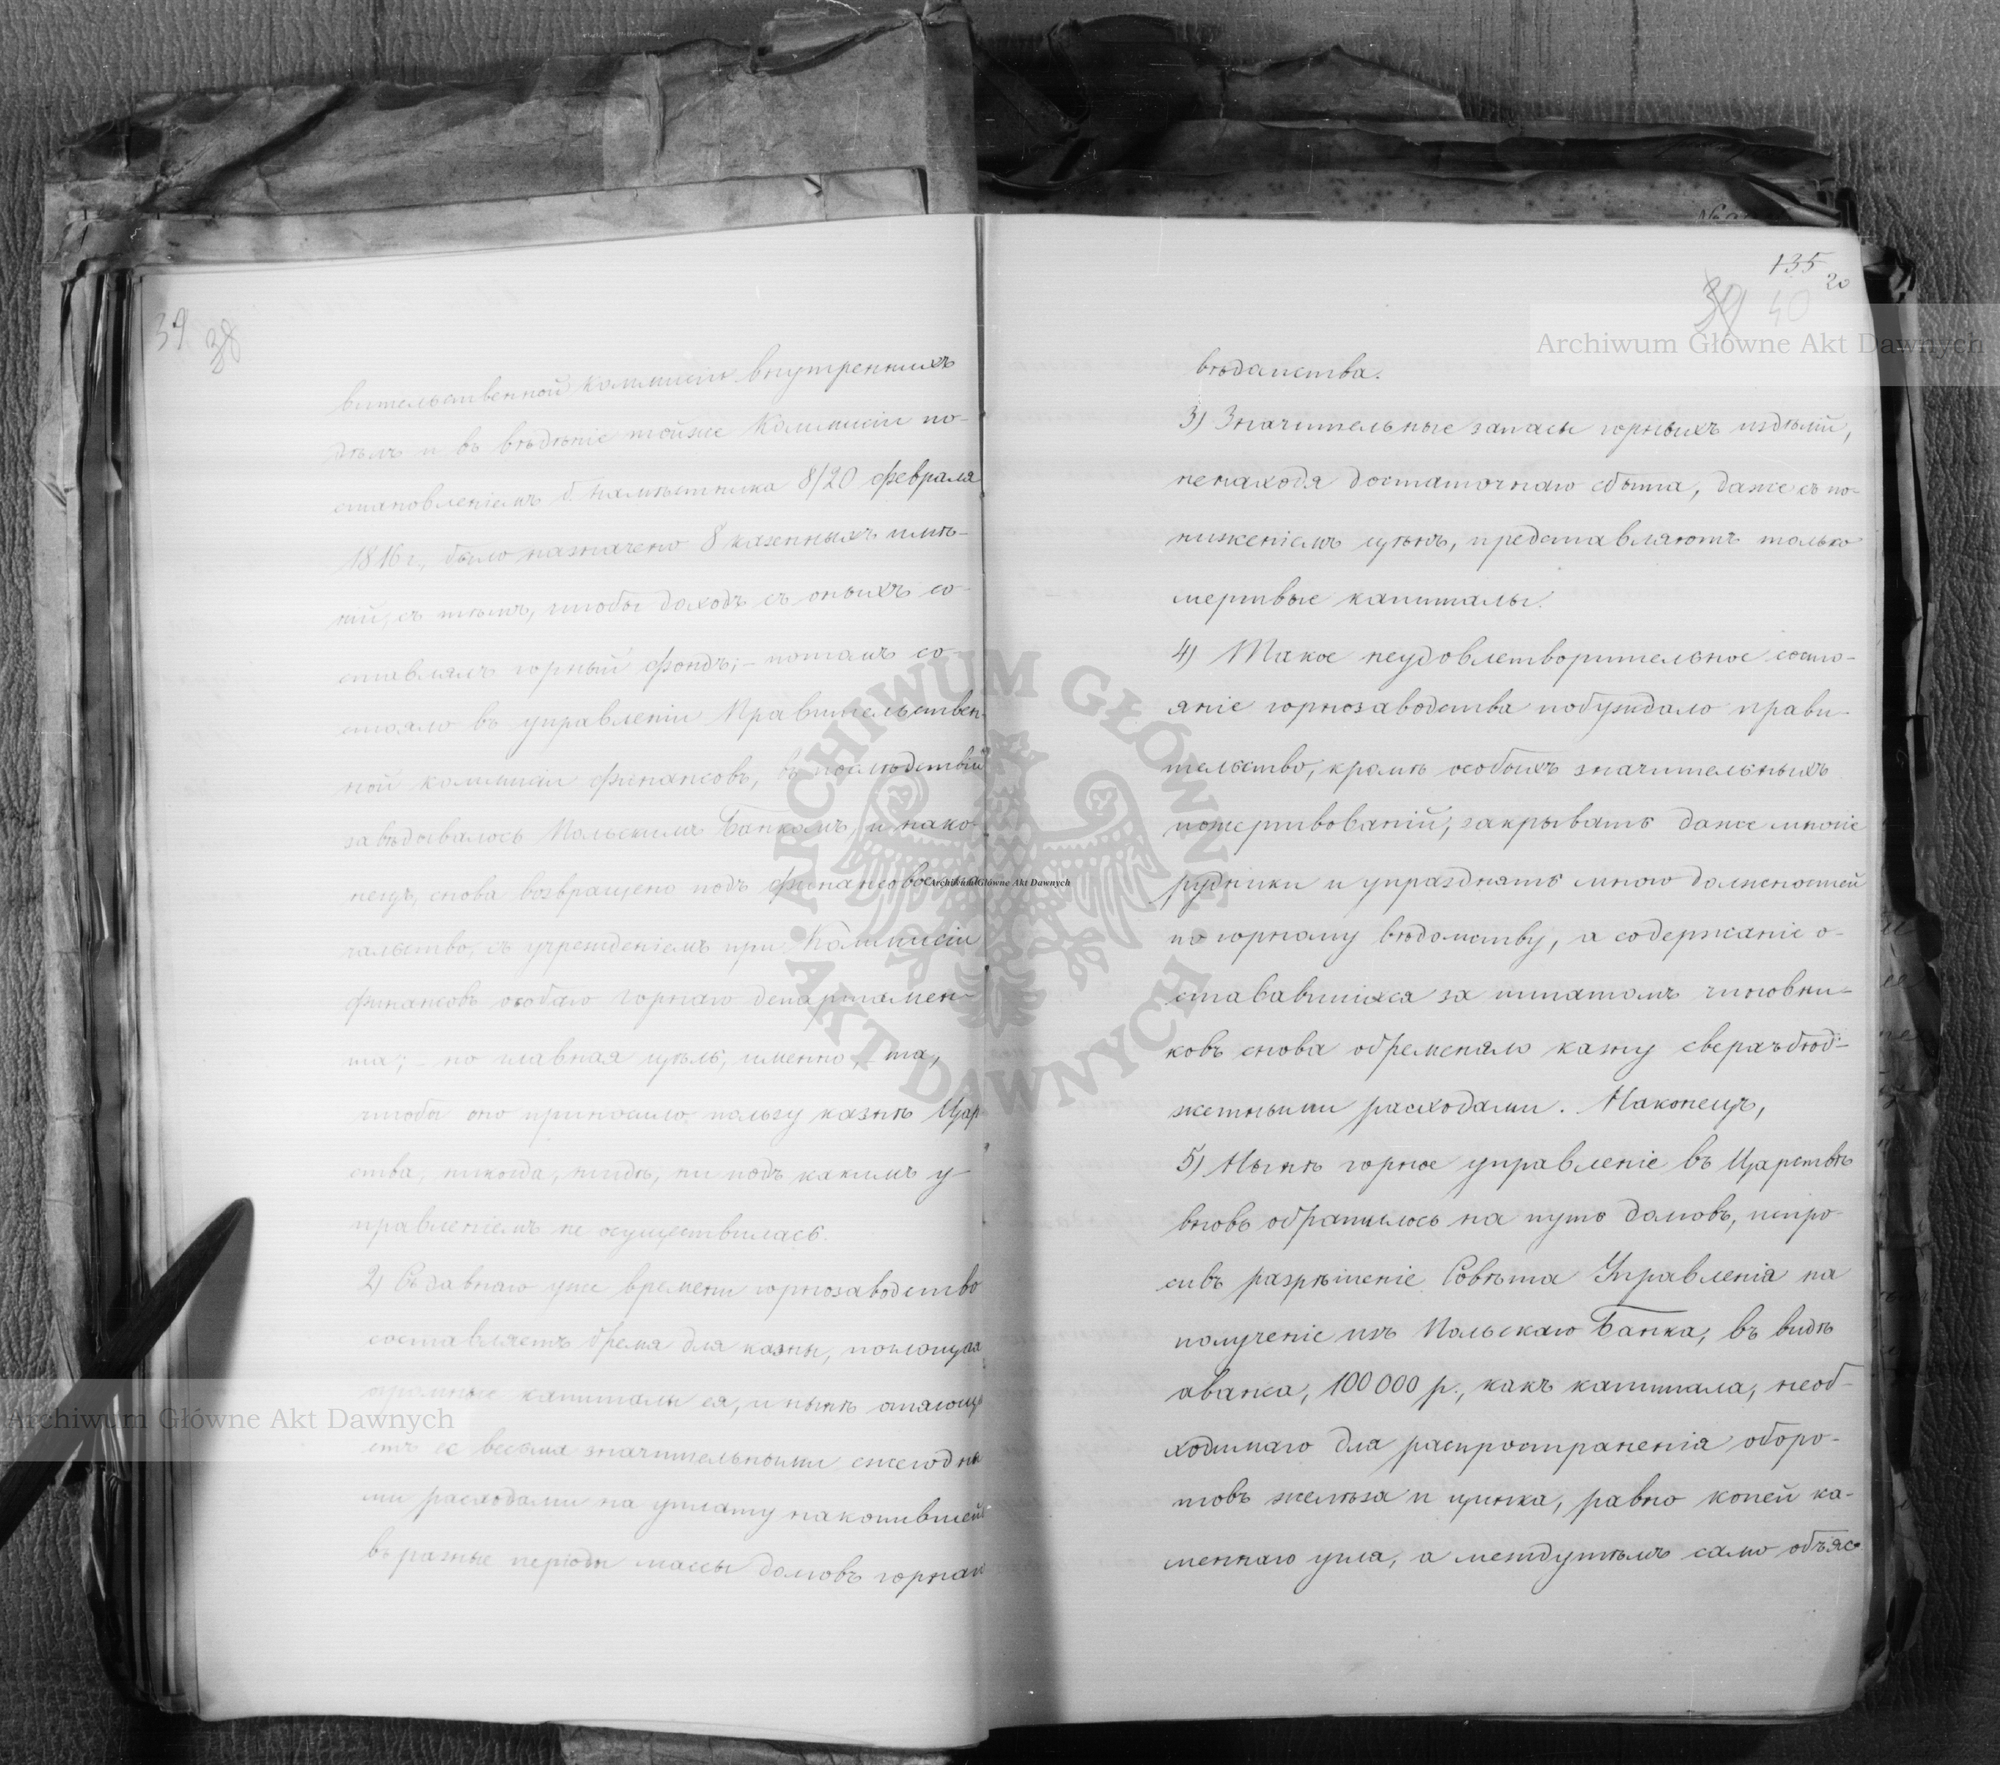 39 38
вительственной Коммисіи внутреннихъ
дѣлъ и въ вѣдѣніе тойже Коммисіи по-
становленіемъ б. Намѣстника 8/20 февраля
1816 г., было назначено 8 казенныхъ имѣ-
ній, съ тѣмъ, чтобы доходъ съ оныхъ со-
ставлялъ горный фондъ; – потомъ со-
стояло въ управленіи Правительствен-
ной коммисіи финансовъ, въ послѣдствіи
завѣдывалось Польскимъ Банкомъ, и нако-
нецъ, снова возвращено подъ финансовое на-
чальство, съ учрежденіемъ при Коммисіи
финансовъ особаго горнаго департамен-
та; – но главная цѣль, именно – та,
чтобы оно приносило пользу казнѣ Цар-
ства, никогда, нигдѣ, ни подъ какимъ у-
правленіемъ не осуществилась.
2) Съ давняго уже времени горнозаводство
составляетъ бремя для казны, поглощая
огромные капиталы ея, и нынѣ отягоща-
етъ ее весьма значительными ежегодны
ми расходами на уплату накопившейся
въ разные періоды массы долговъ горнаго
135
20
39 40
вѣдомства.
3) Значительные запасы горныхъ издѣлій,
ненаходя достаточнаго сбыта, даже съ по-
ниженіемъ цѣнъ, представляютъ только
мертвые капиталы.
4) Такое неудовлетворительное состо-
яніе горнозаводства побуждало прави-
тельство, кромѣ особыхъ значительныхъ
пожертвованій, закрывать даже многіе
рудники и упразднять много должностей
по горному вѣдомству, а содержаніе о-
стававшихся за штатомъ чиновни-
ковъ снова обременяло казну сверхъ бюд-
жетными расходами. Наконецъ,
5) Нынѣ горное управленіе въ Царствѣ
вновь обратилось на путь долговъ, испро-
сивъ разрѣшеніе Совѣта Управленія на
полученіе изъ Польскаго Банка, въ видѣ
аванса, 100 000 р., какъ капитала, необ-
ходимаго для распространенія оборо-
товъ желѣза и цинка, равно копей ка-
меннаго угля, а междутѣмъ само объяс-
Archiwum Główne Akt Dawnych
Archiwum Główne Akt Dawnych
Archiwum Główne Akt Dawnych
ARCHIWUM GŁÓWNE · AKT DAWNYCH ·